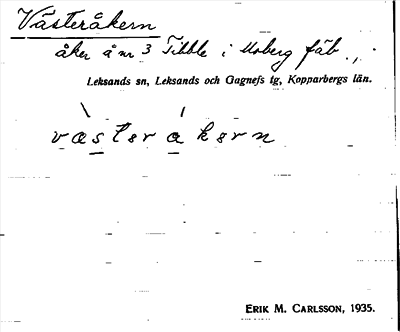 Västeråkern
åker å nr 3 Tibble i Moberg fäb.,
Leksands sn, Leksands och Gagnefs tg, Kopparbergs län.
väster åkern
ERIK M. CARLSSON, 1935.